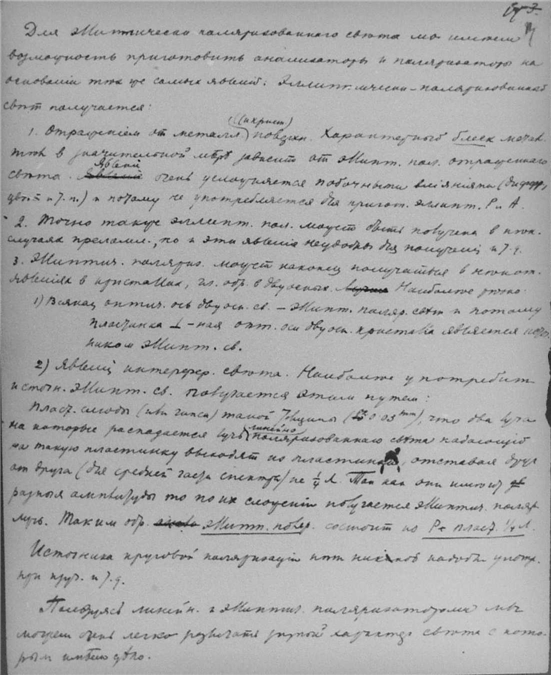 стр 3.
Для эллиптически поляризованного света мы имеем
возможность приготовить анализаторы и поляризаторы на
основании тех же самых явлений: Эллиптически-поляризованный
свет получается:
1. Отражением от металл. поверхн. Характерный блеск метал-
лов в значительной мере зависит от эллипт. пол. отраженного
света. Явление очень усложняется побочными влияниями
и т. п.) и потому не употребляется для пригот. эллипт. P и A.
2. Точно также эллипт. пол. может быть получена в нек.
случаях преломл., но и эти явления неудобны для получения и т. д.
3. Эллиптич. поляриз. может наконец получаться в некот.
явлениях в кристаллах, гл. обр. в двуосных. Наиболее
1) Всякая оптич. ось двуосн. св. – эллипт. поляр. свет и потому
пластинка ⊥-ная опт. оси двуосн. кристалла является источ-
ником эллипт. св.
2) Явления интерфер. света. Наиболее употребит.
источн. эллипт. св. получается этим путем:
Пласт. слюды (или гипса) такой толщины, что два луча
на которые распадается луч линейно поляризованного света падающий
на такую пластинку выходят из пластинки, отставая друг
от друга (для средней части спектра) на ¼ λ. Так как они имеют
разные амплитуды то по их сложении получается эллиптич. поляр.
луч. Таким обр. эллипт. поляр. состоит из P + пласт. ¼ λ.
Источника круговой поляризации
при и т. д.
Пользуясь линейн. и эллиптич. поляризаторами мы
можем очень легко различать характер света с кото-
рым имеем дело.